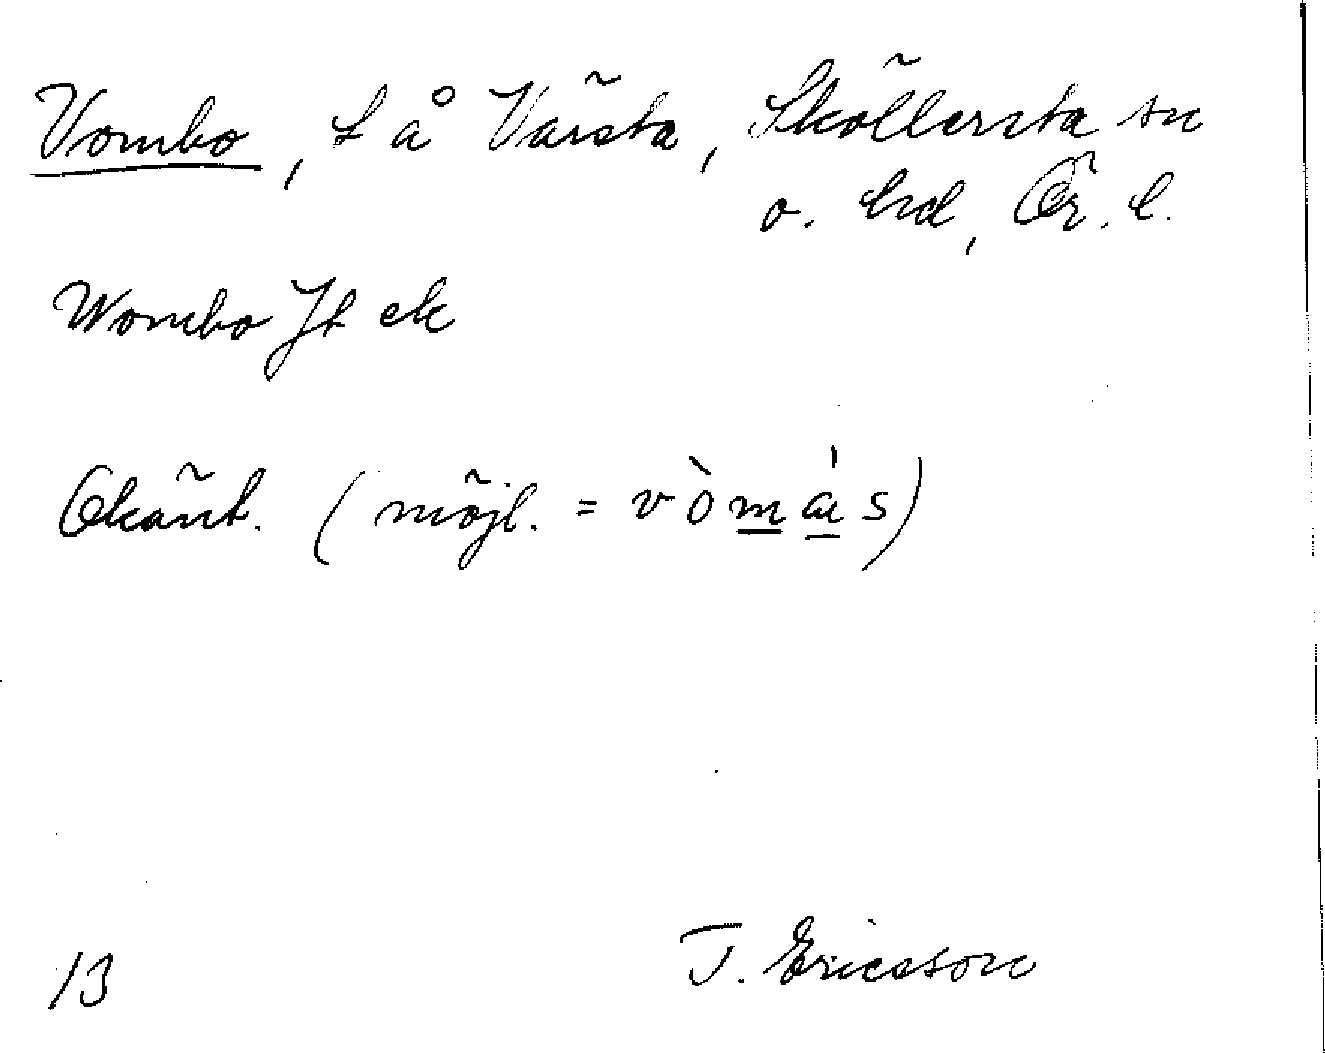 Vombo, t å Värsta, Sköllersta sn
o. hd, Ör. l.
Wombo Jt ek
Okänt. (möjl. = vòmás)
13
T. Ericsson